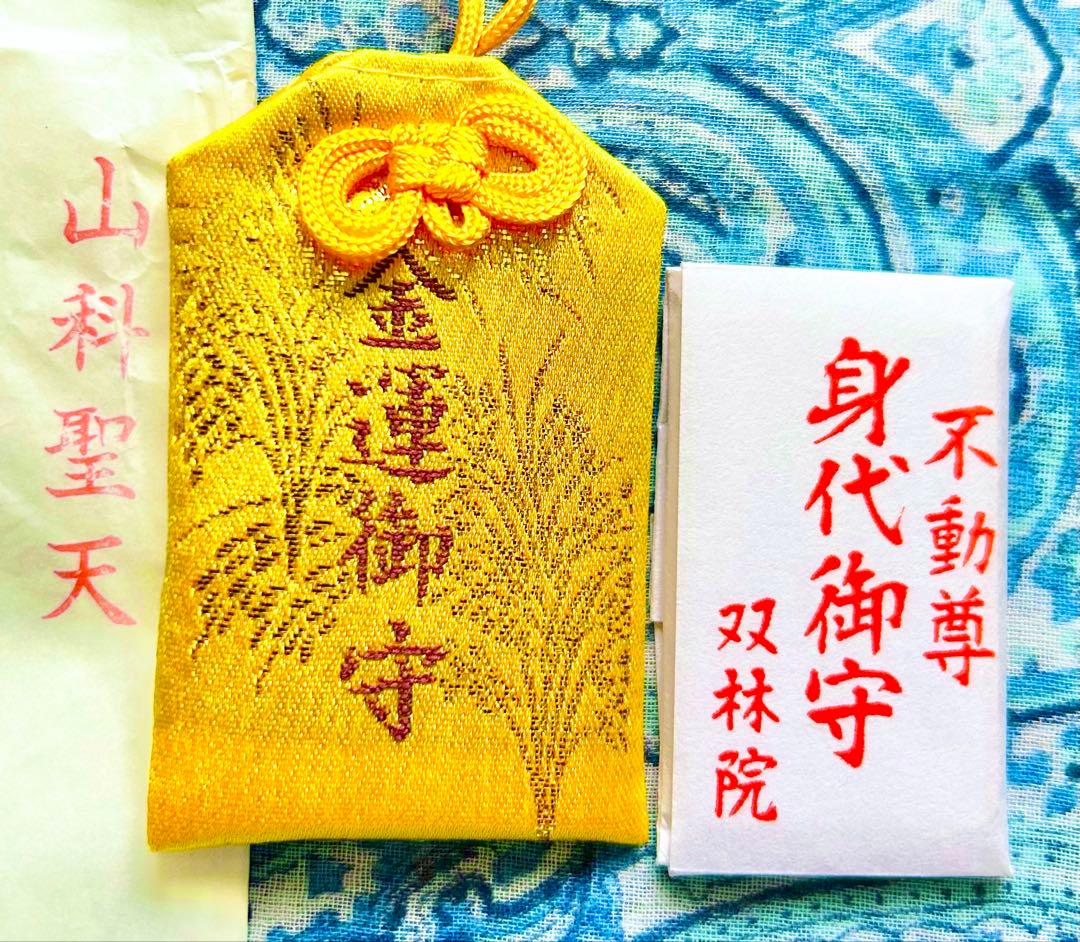 山科聖天
金運御守
不動尊
身代御守
双林院